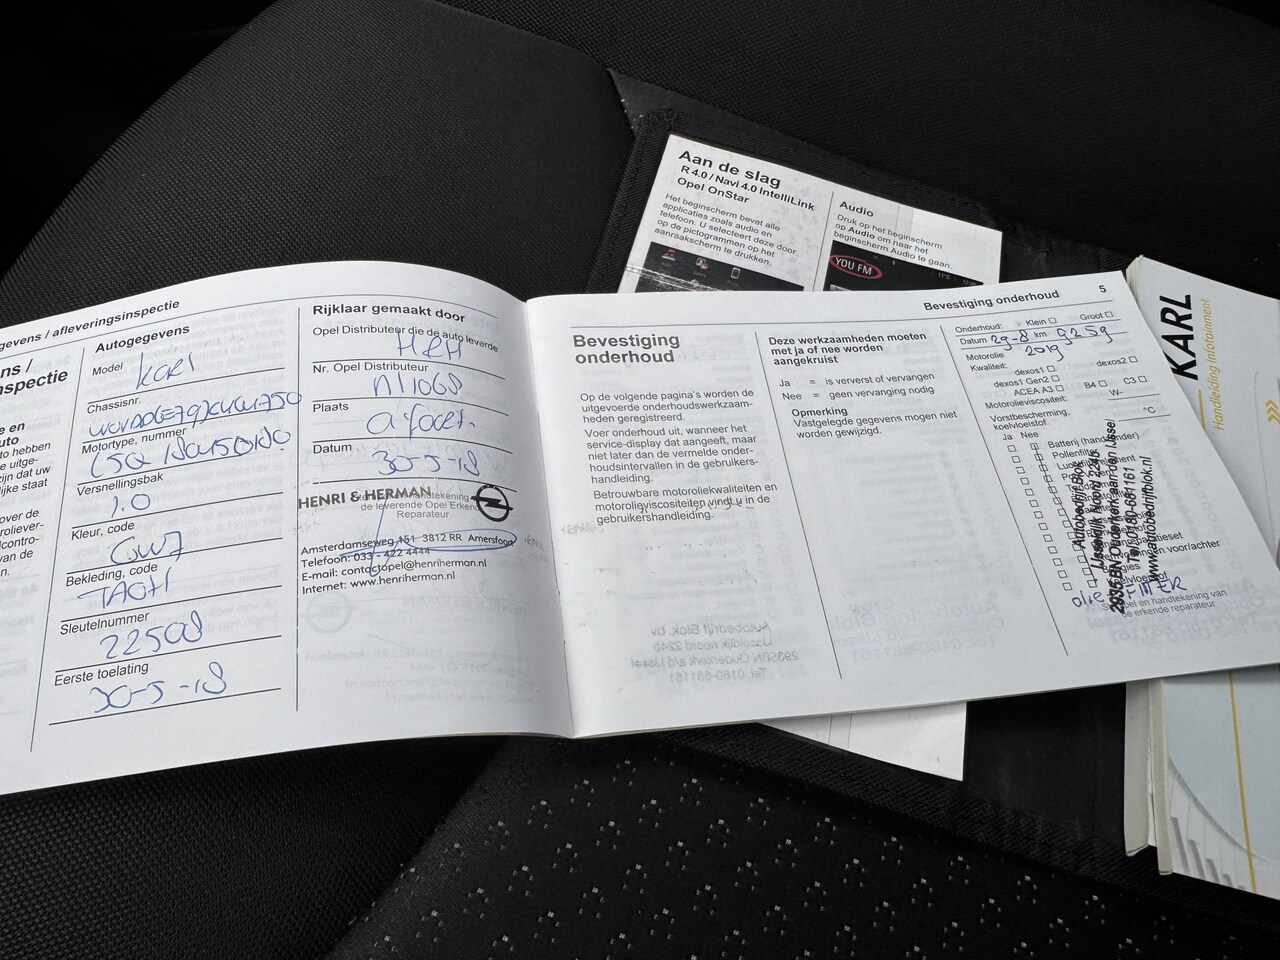 gevens / afleveringsinspectie
ns /
nspectie
en
uto
hebben
e uitge-
zijn dat uw
lijke staat
over de
rolever-
contro-
van de
n.
Autogegevens
Model
Karl
Chassisnr.
Motortype, nummer
Versnellingsbak
1.0
Kleur, code
GW7
Bekleding, code
TAOH
Sleutelnummer
22508
Eerste toelating
30-5-18
Rijklaar gemaakt door
Opel Distributeur die de auto leverde
H&H
Nr. Opel Distributeur
nl1068
Plaats
Datum
30-5-18
HENRI & HERMAN
de leverende Opel Erkend
Reparateur
Amsterdamseweg 151 3812 RR Amersfoort
Telefoon: 033 - 422 4444
E-mail: contactopel@henriherman.nl
Internet: www.henriherman.nl
Bevestiging onderhoud 5
Bevestiging
onderhoud
Op de volgende pagina's worden de
uitgevoerde onderhoudswerkzaam-
heden geregistreerd.
Voer onderhoud uit, wanneer het
service-display dat aangeeft, maar
niet later dan de vermelde onder-
houdsintervallen in de gebruikers-
handleiding.
Betrouwbare motoroliekwaliteiten en
motorolieviscositeiten vindt u in de
gebruikershandleiding.
Deze werkzaamheden moeten
met ja of nee worden
aangekruist
Ja = is ververst of vervangen
Nee = geen vervanging nodig
Opmerking
Vastgelegde gegevens mogen niet
worden gewijzigd.
Onderhoud: Klein Groot
Datum 29-8 km 9259
2019
Motorolie
Kwaliteit: dexos1 dexos2
dexos1 Gen2
ACEA A3 B4 C3
Motorolieviscositeit: W-
Vorstbescherming,
koelvloeistof °C
Ja Nee
Batterij (handzender)
Pollenfilter
Autobedrijf Blok
IJsseldijk Noord 224b
2935 BN Ouderkerk aan den IJssel
Tel. 0180-681161
www.autobedrijfblok.nl
Stempel en handtekening van
de erkende reparateur
Aan de slag
R 4.0 / Navi 4.0 IntelliLink
Opel OnStar
Het beginscherm bevat alle
applicaties zoals audio en
telefoon. U selecteert deze door
op de pictogrammen op het
aanraakscherm te drukken.
Audio
Druk op het beginscherm
op Audio om naar het
beginscherm Audio te gaan.
YOU FM
KARL
Handleiding Infotainment